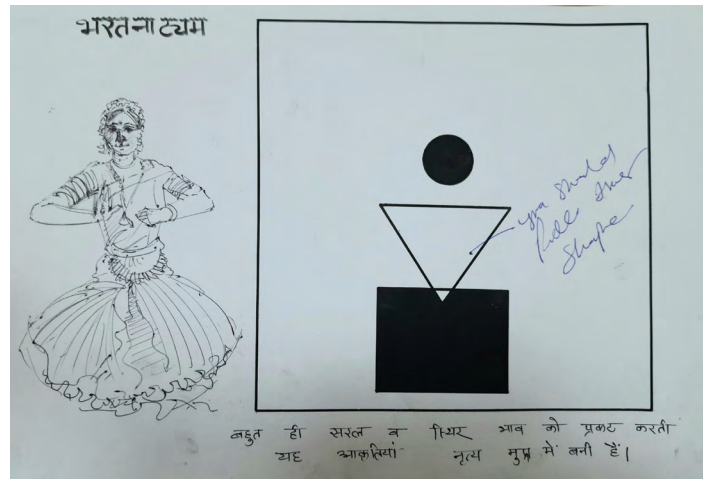 भरतनाट्यम
you should
fill inner
shape
बहुत ही सरल व स्थिर भाव को प्रकट करती
यह आकृतियां नृत्य मुद्रा में बनी हैं।